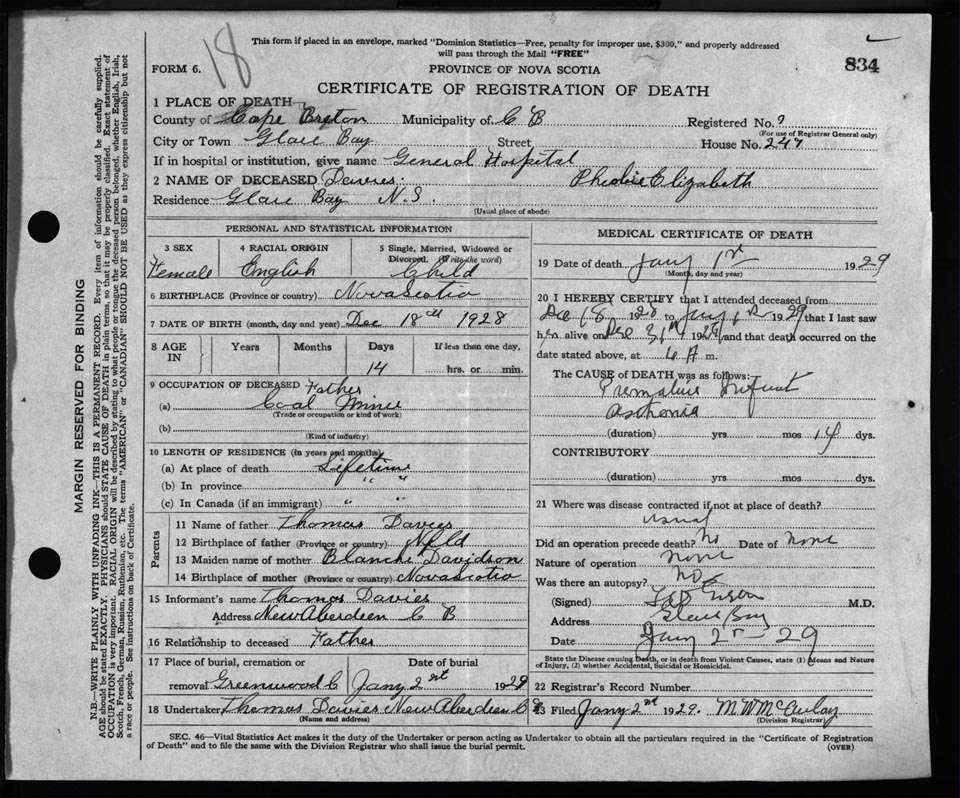 18
This form if placed in an envelope, marked "Dominion Statistics—Free, penalty for improper use, $300," and properly addressed
will pass through the Mail "FREE"
FORM 6.
PROVINCE OF NOVA SCOTIA
834
CERTIFICATE OF REGISTRATION OF DEATH
1 PLACE OF DEATH
County of Cape Breton Municipality of C B Registered No.
(For use of Registrar General only)
City or Town Glace Bay Street House No. 247
If in hospital or institution, give name General Hospital
2 NAME OF DECEASED Davies: Elizabeth
Residence Glace Bay N.S.
(Usual place of abode)
PERSONAL AND STATISTICAL INFORMATION
3 SEX 4 RACIAL ORIGIN 5 Single, Married, Widowed or
Divorced. (Write the word)
Female English Child
6 BIRTHPLACE (Province or country) Nova Scotia
7 DATE OF BIRTH (month, day and year) Dec 18th 1928
8 AGE IN Years Months Days If less than one day,
14 hrs. or min.
9 OCCUPATION OF DECEASED Father
(a) Coal Miner
(Trade or occupation or kind of work)
(b)
(Kind of industry)
10 LENGTH OF RESIDENCE (in years and months)
(a) At place of death Lifetime
(b) In province " "
(c) In Canada (if an immigrant) " "
Parents
11 Name of father Thomas Davies
12 Birthplace of father (Province or country) Nfld
13 Maiden name of mother Blanche Davidson
14 Birthplace of mother (Province or country) Nova Scotia
15 Informant's name Thomas Davies
Address New Aberdeen C B
16 Relationship to deceased Father
17 Place of burial, cremation or Date of burial
removal Greenwood C Jany 2nd 1929
18 Undertaker Thomas Davies New Aberdeen C B
(Name and address)
MEDICAL CERTIFICATE OF DEATH
19 Date of death Jany 1st 1929
(Month, day and year)
20 I HEREBY CERTIFY that I attended deceased from
Dec 18 1928 to Jany 1 1929 that I last saw
her alive on Dec 31 1928, and that death occurred on the
date stated above, at 6 A m.
The CAUSE OF DEATH was as follows:
Premature Infant
asthenia
(duration) yrs mos 14 dys.
CONTRIBUTORY
(duration) yrs mos dys.
21 Where was disease contracted if not at place of death?
usual
Did an operation precede death? No Date of None
Nature of operation None
Was there an autopsy? No
(Signed) M.D.
Address Glace Bay
Date Jany 2nd - 29
State the Disease causing Death, or in death from Violent Causes, state (1) Means and Nature
of Injury, (2) whether Accidental, Suicidal or Homicidal.
22 Registrar's Record Number
23 Filed Jany 2nd 1929.
(Division Registrar)
SEC. 46—Vital Statistics Act makes it the duty of the Undertaker or person acting as Undertaker to obtain all the particulars required in the "Certificate of Registration
of Death" and to file the same with the Division Registrar who shall issue the burial permit.
(OVER)
MARGIN RESERVED FOR BINDING
N.B.—WRITE PLAINLY WITH UNFADING INK—THIS IS A PERMANENT RECORD. Every item of information should be carefully supplied.
AGE should be stated EXACTLY. PHYSICIANS should STATE CAUSE OF DEATH in plain terms, so that it may be properly classified. Exact statement of
OCCUPATION is very important. RACIAL ORIGIN will be described by stating to what people or tongue the deceased person belonged, whether English, Irish,
Scotch, French, German, Russian, Ruthenian, etc. The terms "AMERICAN" or "CANADIAN" SHOULD NOT BE USED as they express citizenship but not
a race or people. See instructions on back of Certificate.